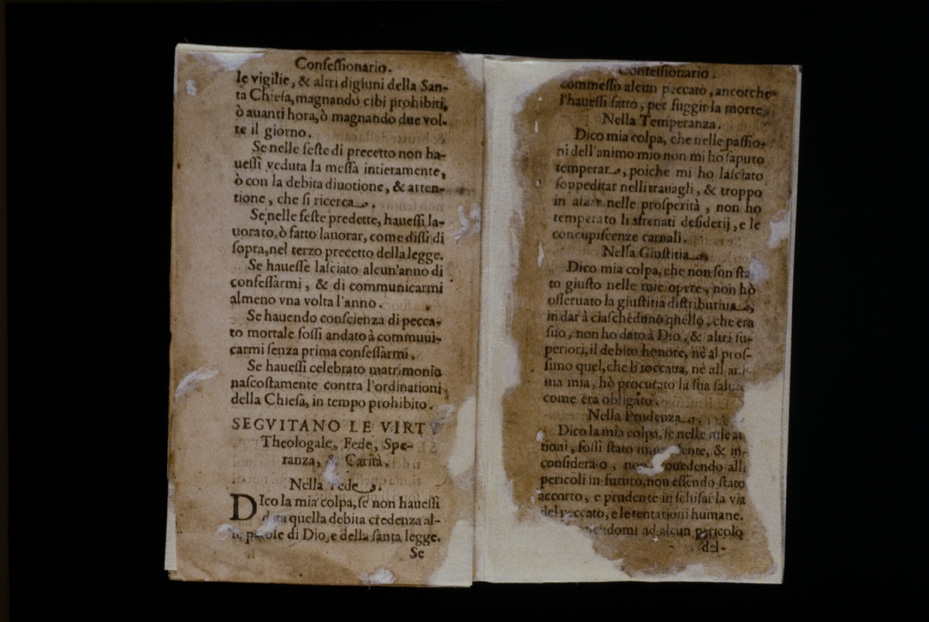 Confessionario.
le vigilie, & altri digiuni della San-
ta Chiesa, magnando cibi prohibiti,
ò auanti hora, ò magnando due vol-
te il giorno.
Se nelle feste di precetto non ha-
uessi veduta la messa intieramente,
ò con la debita diuotione, & atten-
tione, che si ricerca.
Se nelle feste predette, hauessi la-
uorato, ò fatto lauorar, come dissi di
sopra, nel terzo precetto della legge.
Se hauesse lasciato alcun'anno di
confessarmi, & di communicarmi
almeno vna volta l'anno.
Se hauendo conscienza di pecca-
to mortale fossi andato à communi-
carmi senza prima confessarmi.
Se hauessi celebrato matrimonio
nascostamente contra l'ordinationi
della Chiesa, in tempo prohibito.
SEGVITANO LE VIRTV
Theologale, Fede, Spe-
ranza, & Carità.
Nella Fede.
DIco la mia colpa, se non hauessi
data quella debita credenza al-
le parole di Dio, e della santa legge.
Se
Confessionario.
commesso alcun peccato, ancorche
l'hauessi fatto, per fuggir la morte.
Nella Temperanza.
Dico mia colpa, che nelle passio-
ni dell'animo mio non mi ho saputo
temperare, poiche mi ho lasciato
soppeditar nelli trauagli, & troppo
in alzar nelle prosperità, non ho
temperato li sfrenati desiderij, e le
concupiscenze carnali.
Nella Giustitia.
Dico mia colpa, che non son sta
to giusto nelle mie opere, non hò
osseruato la giustitia distributiua,
in dar à ciascheduno quello, che era
suo, non ho dato à Dio, & altri su-
periori, il debito honore, nè al pros-
simo quel, che li toccaua, nè all'ani-
ma mia, hò procurato la sua salute
come era obligato.
Nella Prudenza.
Dico la mia colpa, se nelle mie at
tioni, fossi stato imprudente, & in-
considerato, non preuedendo alli
pericoli in futuro, non essendo stato
accorto, e prudente in schifar la via
del peccato, e le tentationi humane.
ad alcun pericolo
del-